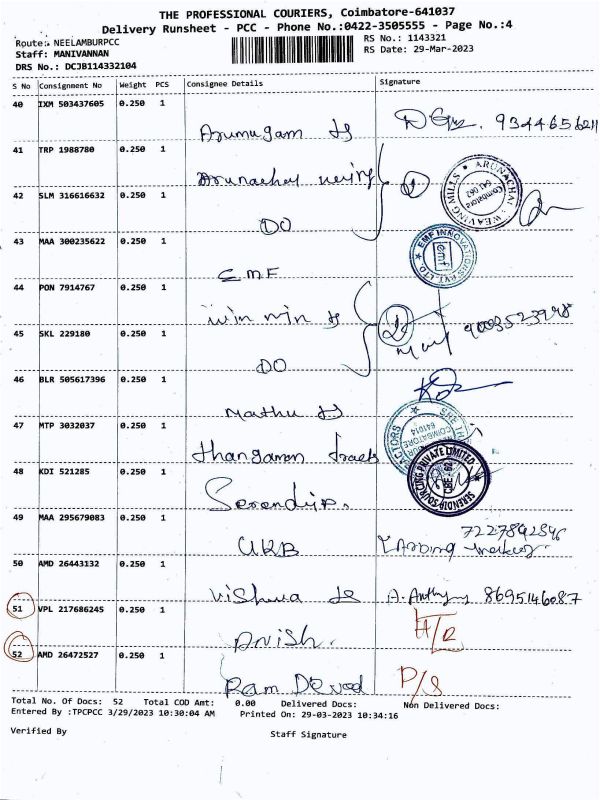 THE PROFESSIONAL COURIERS, Coimbatore-641037
Delivery Runsheet - PCC - Phone No.:0422-3505555 - Page No.:4
Route: NEELAMBURPCC
RS No.: 1143321
Staff: MANIVANNAN
RS Date: 29-Mar-2023
DRS No.: DCJB114332104
S No Consignment No Weight PCS Consignee Details Signature
40 IXM 503437605 0.250 1
Arumugam 9344656211
41 TRP 1988780 0.250 1
Arunachal
ARUNACHAL WEAVING MILLS Coimbatore 641 062
42 SLM 316616632 0.250 1
DO
43 MAA 300235622 0.250 1
EMF INNOVATIONS PVT. LTD. emf
EMF
44 PON 7914767 0.250 1
win win
45 SKL 229180 0.250 1
DO
46 BLR 505617396 0.250 1
Mathu
47 MTP 3032037 0.250 1
COIMBATORE 641014
Thangaman
48 KDI 521285 0.250 1
SERENDIP SOURCING PRIVATE LIMITED CBE-
Serendip.
49 MAA 295679083 0.250 1
UKB
50 AMD 26443132 0.250 1
Vishwa A. Anthony 8695146087
51 VPL 217686245 0.250 1
Anish.
52 AMD 26472527 0.250 1
Ram P/S
Total No. Of Docs: 52 Total COD Amt: 0.00 Delivered Docs: Non Delivered Docs:
Entered By :TPCPCC 3/29/2023 10:30:04 AM Printed On: 29-03-2023 10:34:16
Verified By Staff Signature